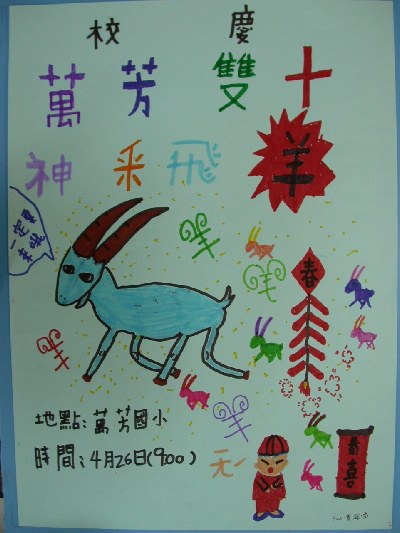 校 慶
萬 芳 雙 十
神 采 飛 羊
一定要
來哦
羊
羊
春
羊
羊
地點:萬芳國小
時間:4月26日(9:00)
喜